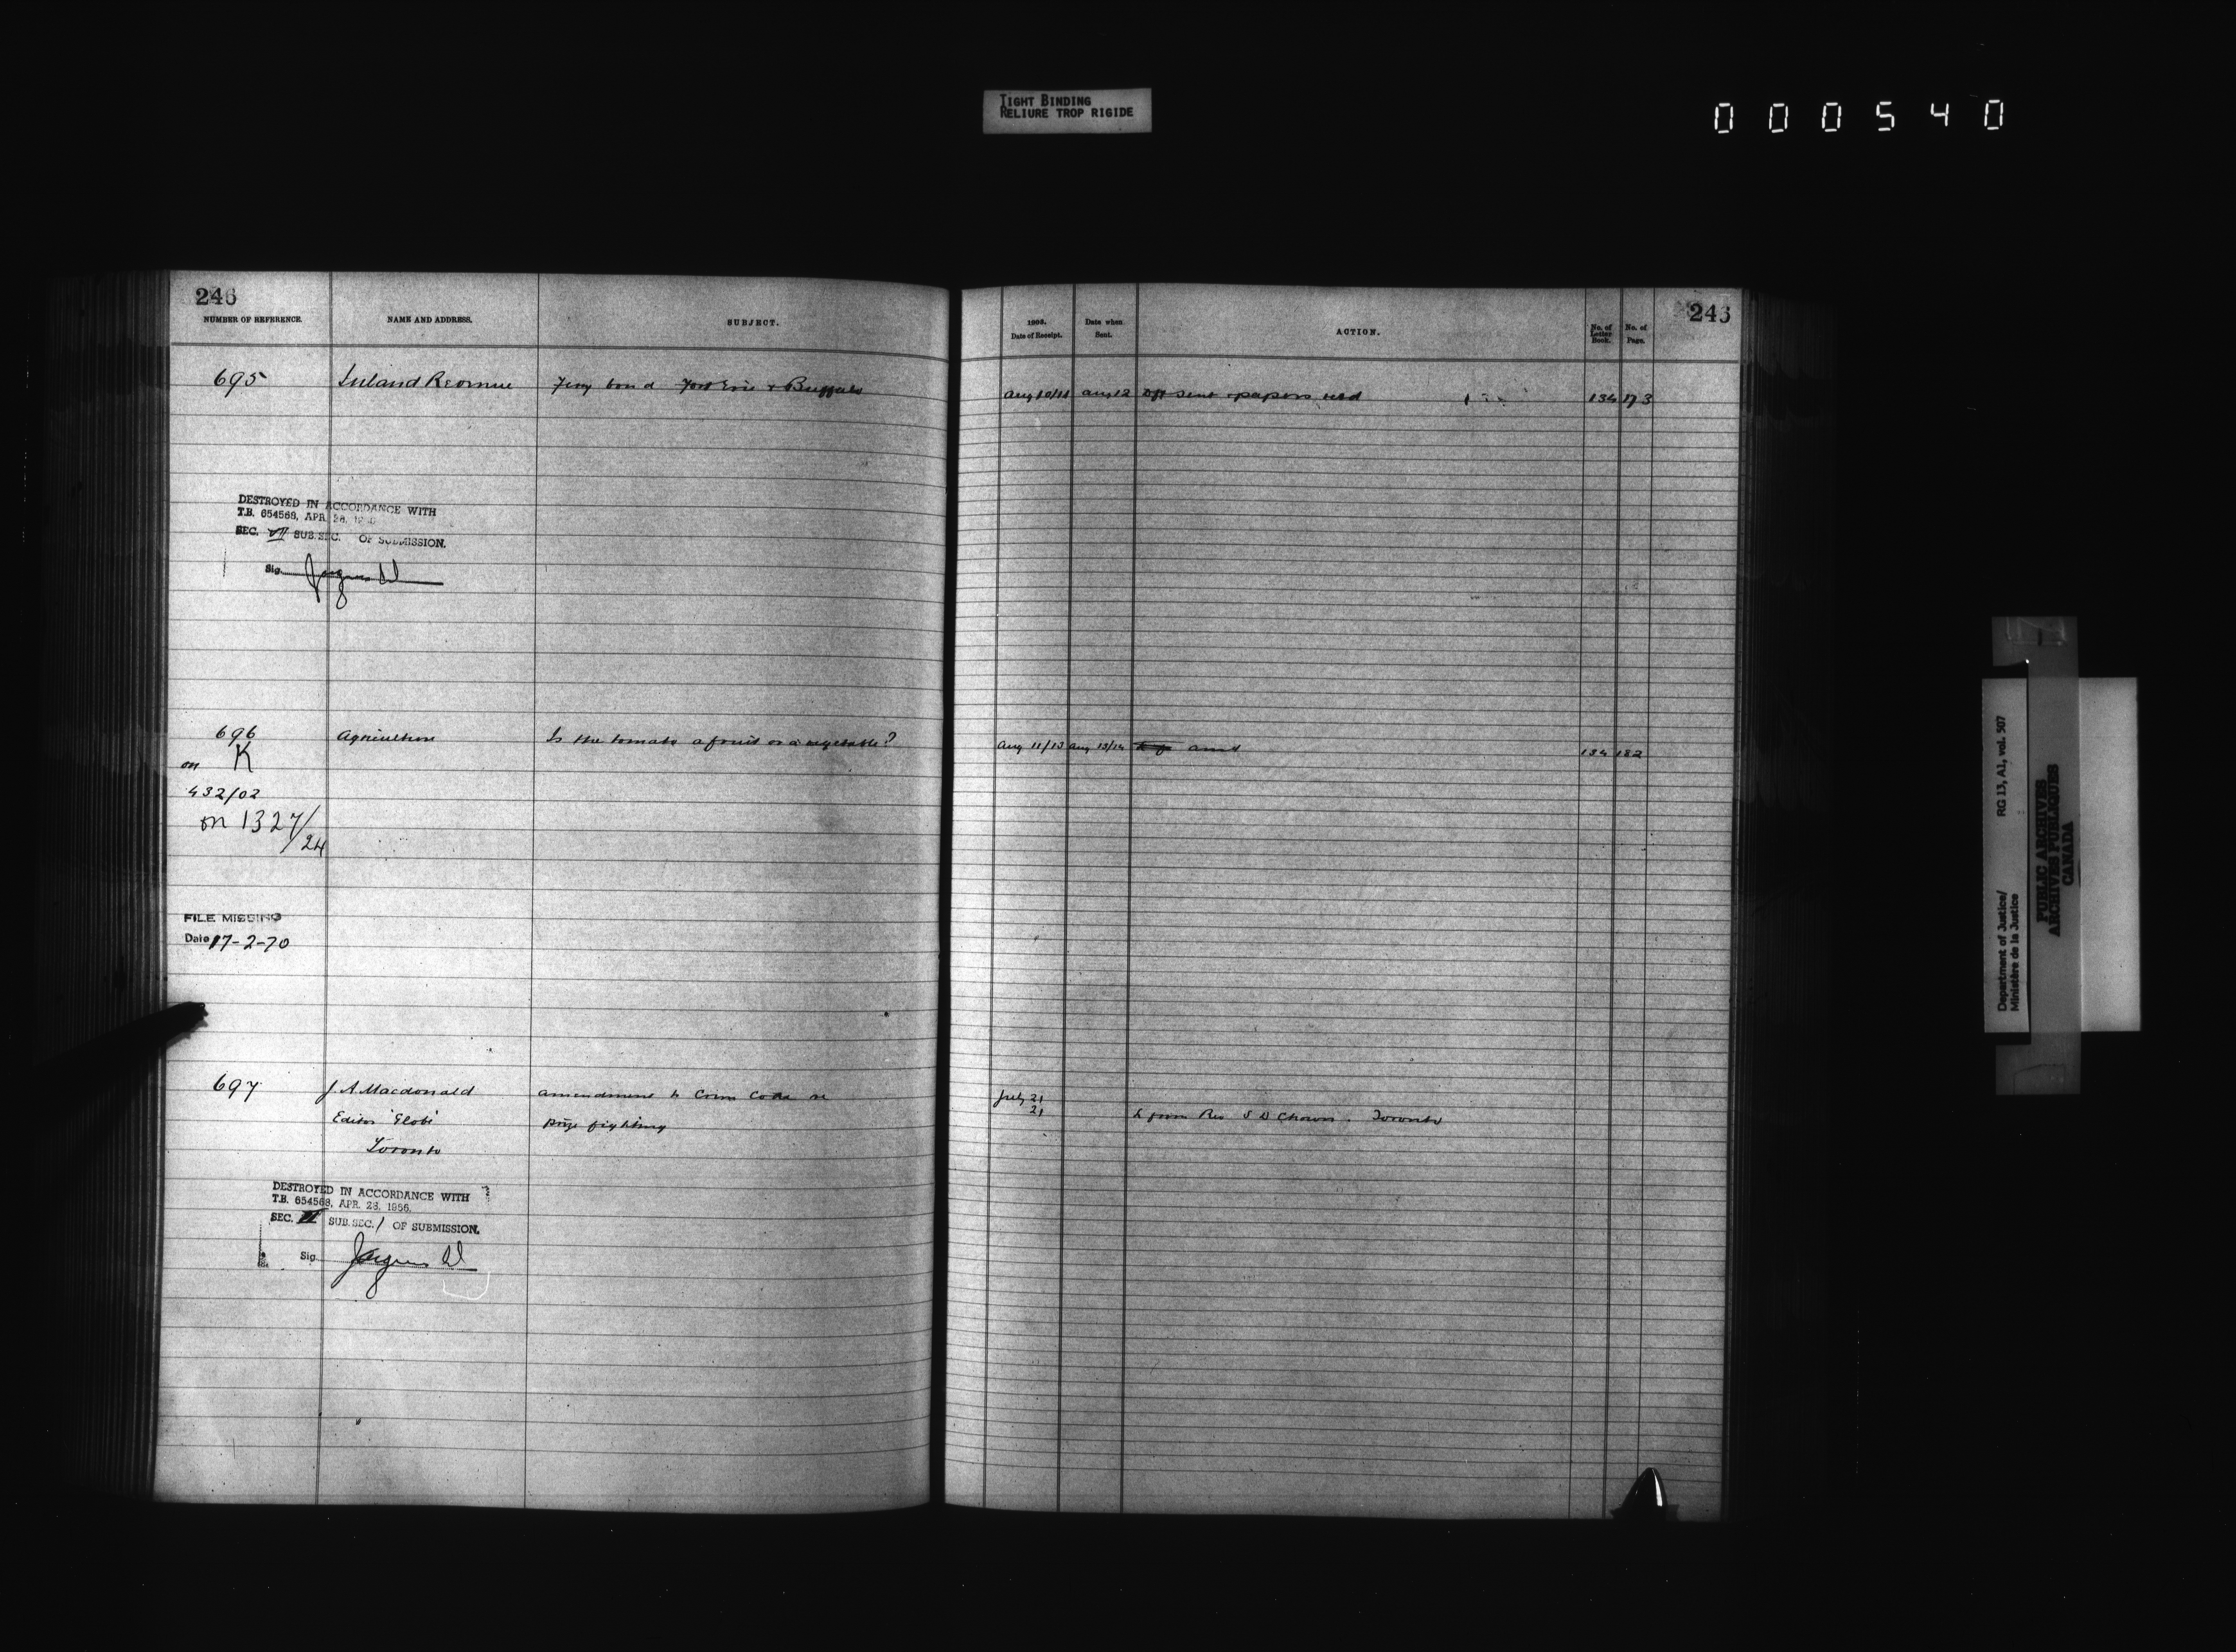 TIGHT BINDING
RELIURE TROP RIGIDE
000540
246
NUMBER OF REFERENCE.
NAME AND ADDRESS.
SUBJECT.
Date of Receipt.
Date when Sent.
ACTION.
No. of Letter Book.
No. of Page.
695 Inland Revenue Ferry bond Fort Erie & Buffalo
Aug 10/11 Aug 12 Dft sent & papers retd 134 173
DESTROYED IN ACCORDANCE WITH
T.B. 654568, APR. 28,
SEC. VII SUB.SEC. OF SUBMISSION.
Sig.
696 Agriculture Is the tomato a fruit or a vegetable?
Aug 11/13 Aug 13/14 ansd 134 182
K
on
432/02
on 1327/
24
FILE MISSING
Date 17-2-70
697 J. A. Macdonald amendment to Crim Code re
July 21
Editor 'Globe' prize fighting
21 L from Rev S D Chown. Toronto
Toronto
DESTROYED IN ACCORDANCE WITH
T.B. 654568, APR. 28, 1956.
SEC. SUB.SEC. 1 OF SUBMISSION.
Sig.
Department of Justice/ RG 13, A1, vol. 507
Ministère de la Justice
PUBLIC ARCHIVES
ARCHIVES PUBLIQUES
CANADA